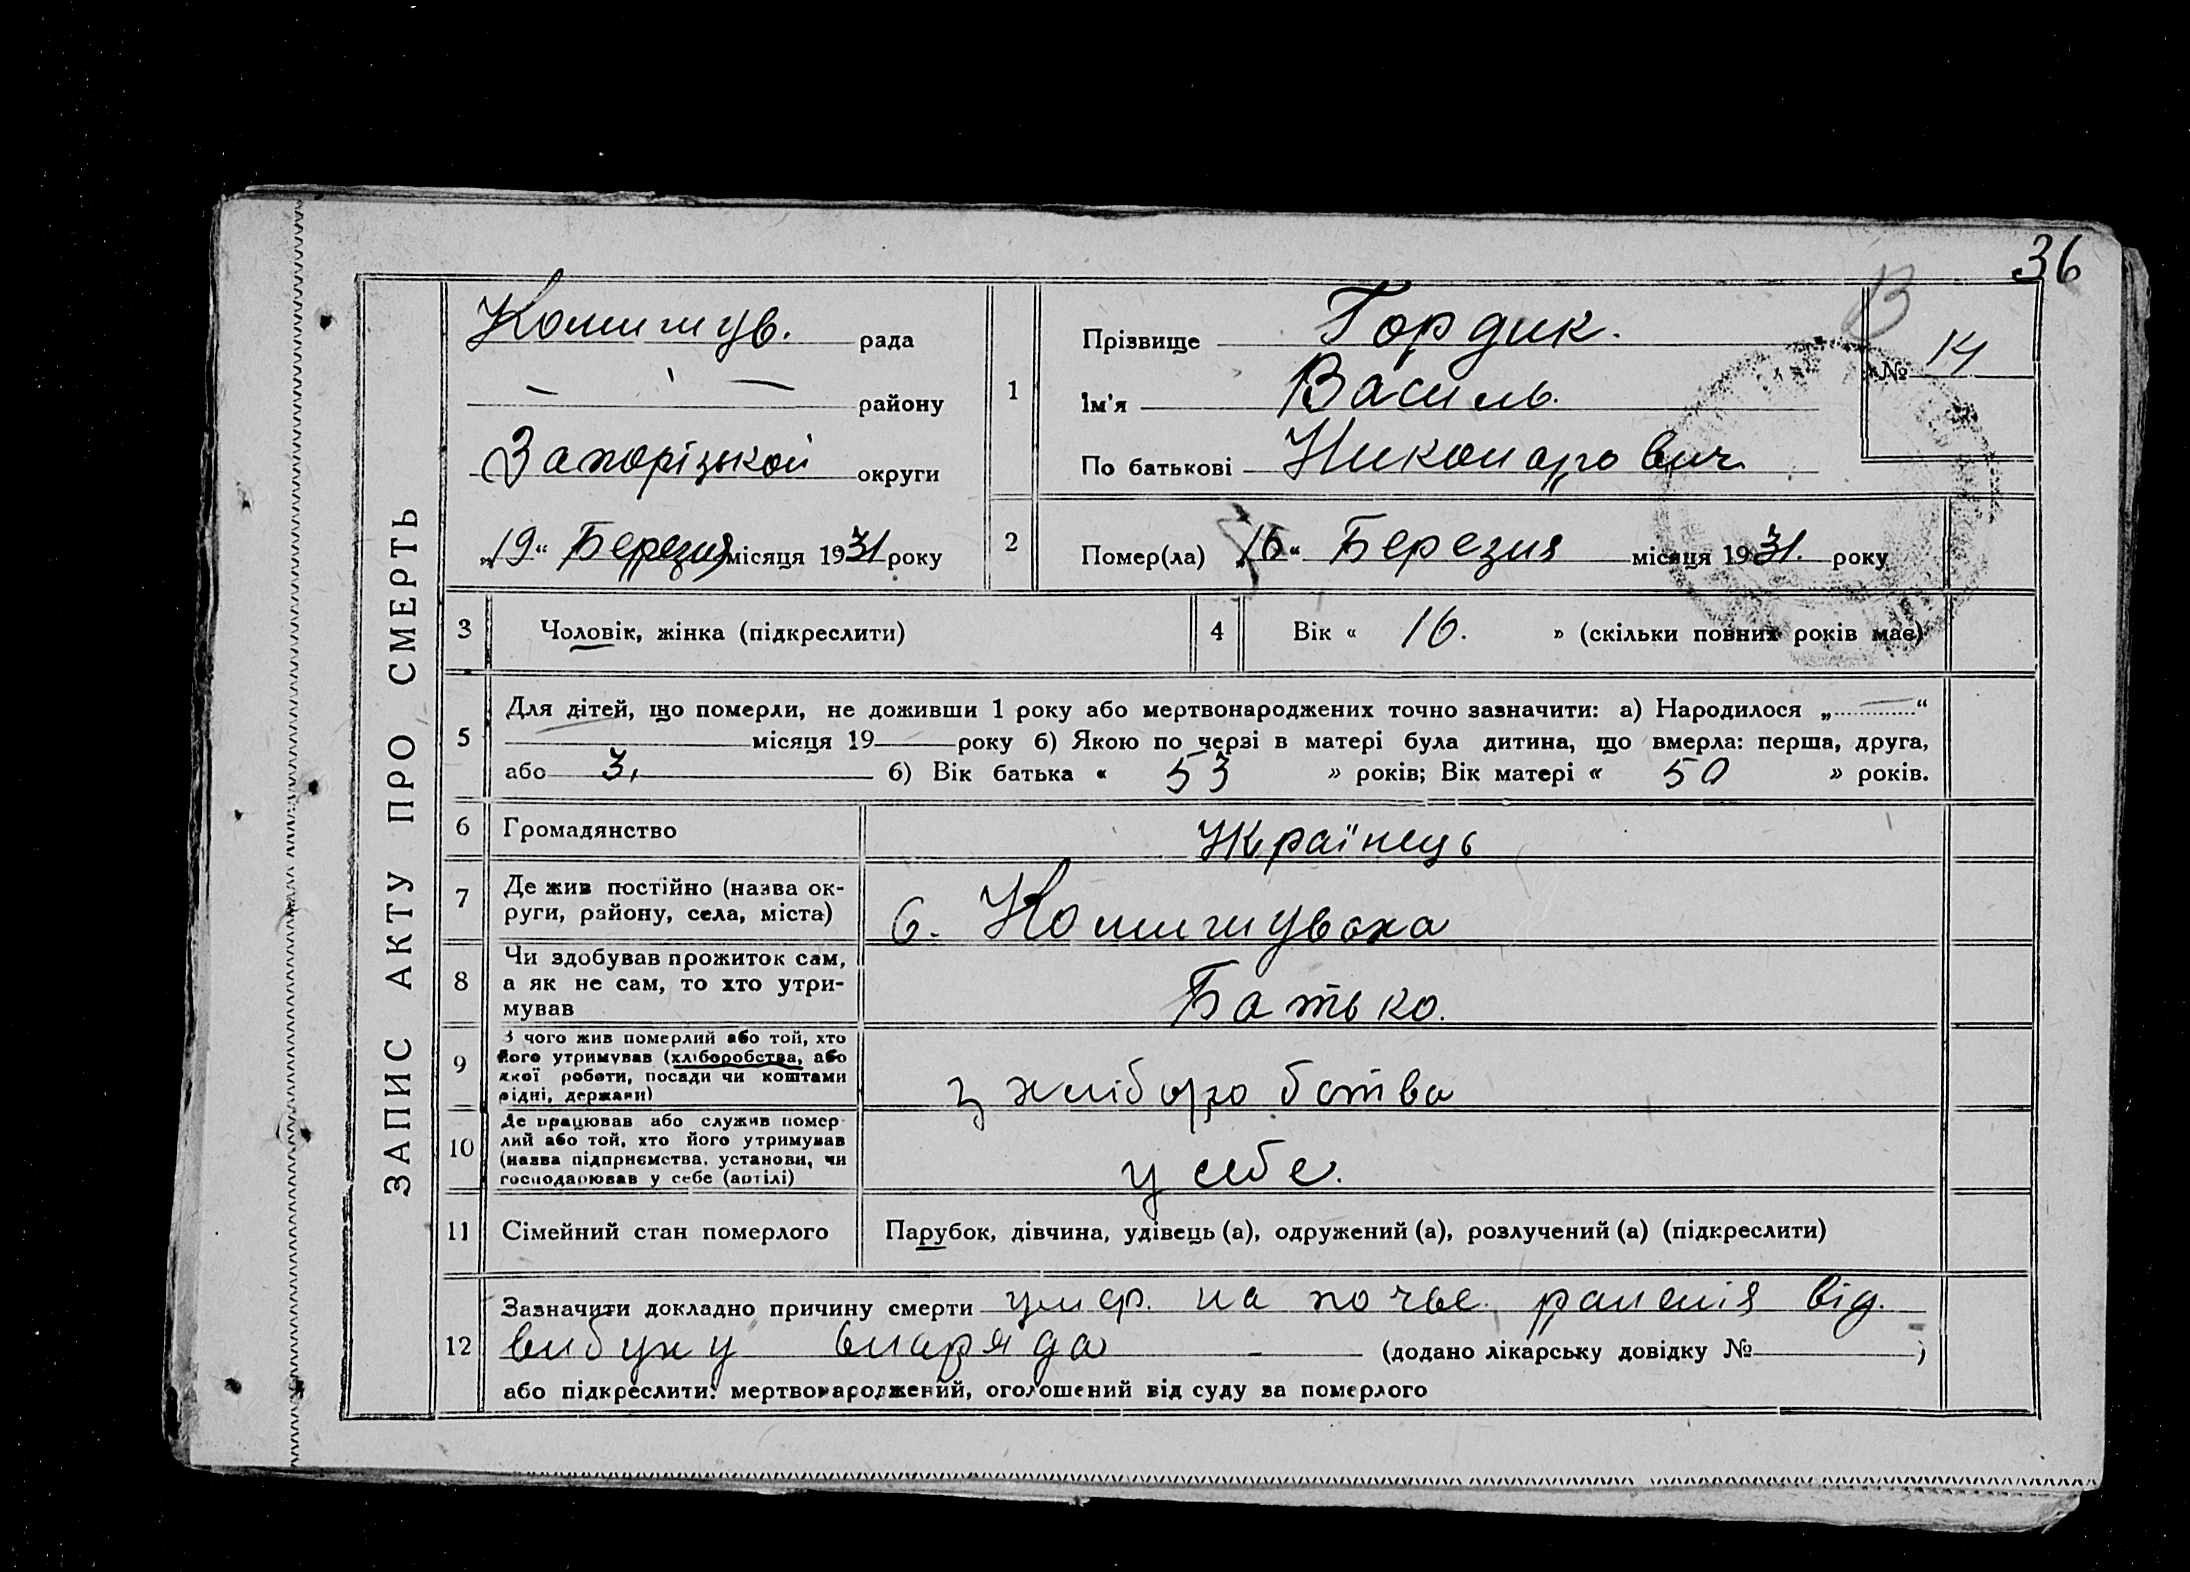 36
ЗАПИС АКТУ ПРО СМЕРТЬ
Комишув. рада
— " — району
Запорізькой округи
„19“ Березня місяця 1931 року
1
Прізвище Гордик.
Ім'я Василь.
По батькові Никонарович
№ 14
В
2
Помер(ла) „16“ Березня місяця 1931. року
3 Чоловік, жінка (підкреслити)
4 Вік « 16. » (скільки повних років має)
5 Для дітей, що померли, не доживши 1 року або мертвонароджених точно зазначити: а) Народилося „—“
місяця 19 року б) Якою по черзі в матері була дитина, що вмерла: перша, друга,
або 3, б) Вік батька « 53 » років; Вік матері « 50 » років.
6 Громадянство Українець
7 Де жив постійно (назва ок-
руги, району, села, міста) с. Комишуваха
8 Чи здобував прожиток сам,
а як не сам, то хто утри-
мував Батько.
9 З чого жив померлий або той, хто
його утримував (хліборобства, або
якої роботи, посади чи коштами
рідні, держави) з хліборобства
10 Де працював або служив помер-
лий або той, хто його утримував
(назва підприємства, установи, чи
господарював у себе (артілі) у себе.
11 Сімейний стан померлого Парубок, дівчина, удівець (а), одружений (а), розлучений (а) (підкреслити)
12 Зазначити докладно причину смерти умер. на почве ранения від.
вибуху снаряда (додано лікарську довідку № )
або підкреслити: мертвонароджений, оголошений від суду за померлого